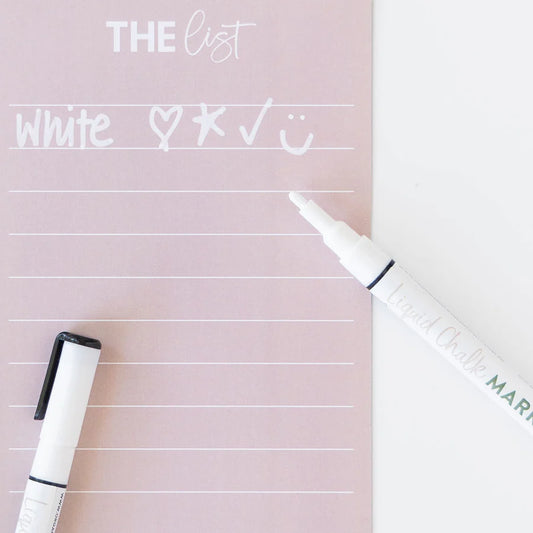 THE list
white
Liquid Chalk MARK
Liqu